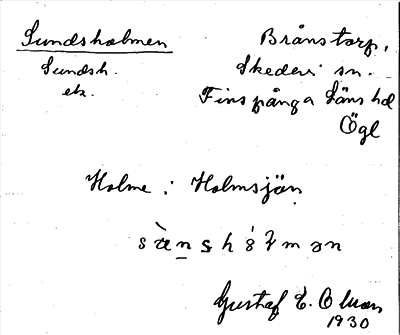 Sundsholmen
Sundsh.
ek.
Brånstorp,
Skedevi sn.
Finspånga Läns hd
Ögl
Holme i Holmsjön
Gustaf E. Olsson
1930